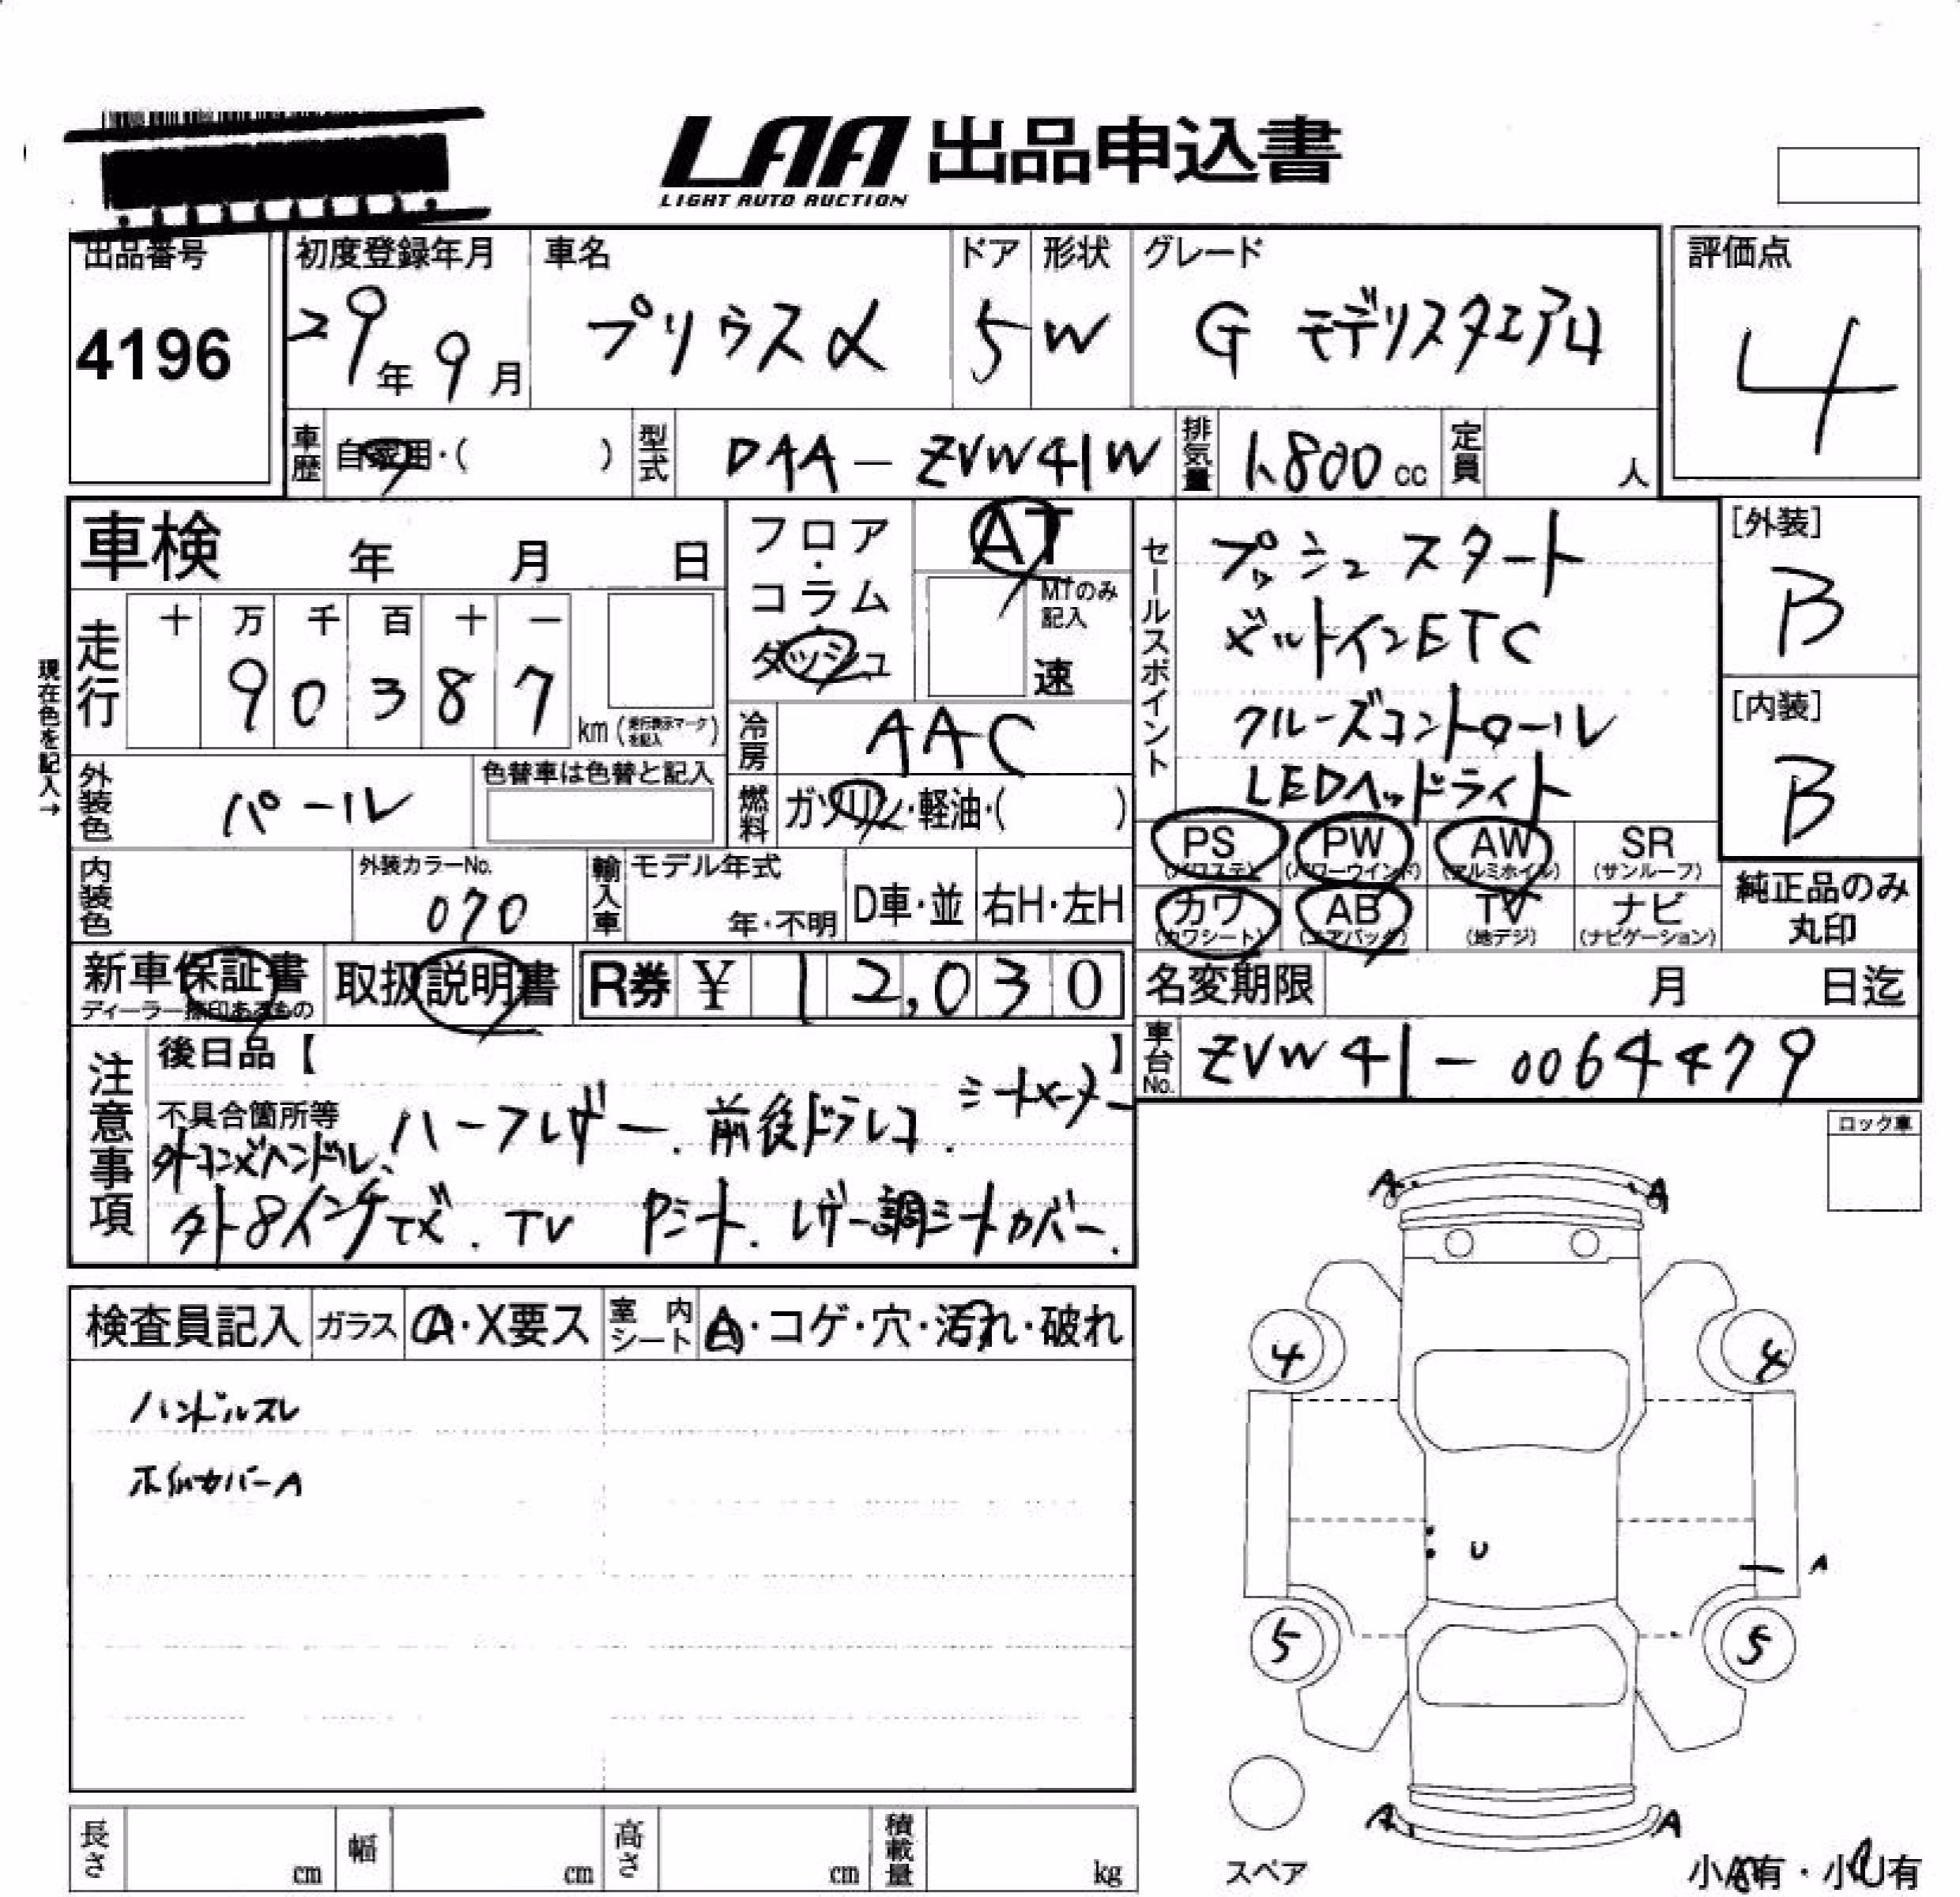 LAA 出品申込書
LIGHT AUTO AUCTION
出品番号 初度登録年月 車名 ドア 形状 グレード 評価点
4196 29年 9月 プリウスα 5 W G モデリスタエアロ 4
車歴 自家用・( ) 型式 DAA-ZVW41W 排気量 1,800cc 定員 人
車検 年 月 日
フロア・コラム・ダッシュ
AT
MTのみ記入
速
セールスポイント
プッシュスタート
ビルトインETC
クルーズコントロール
LEDヘッドライト
[外装]
B
[内装]
B
現在色を記入→
走行 十 万 千 百 十 一
9 0 3 8 7 km (走行表示マークを記入)
冷房 AAC
外装色 パール 色替車は色替と記入
燃料 ガソリン・軽油・( )
PS (パワステ) PW (パワーウインド) AW (アルミホイル) SR (サンルーフ)
カワ (カワシート) AB (エアバッグ) TV (地デジ) ナビ (ナビゲーション)
純正品のみ丸印
内装色 外装カラーNo. 070 輸入車 モデル年式 年・不明 D車・並 右H・左H
新車保証書 取扱説明書 R券 ¥ 12,030
ディーラー捺印あるもの
名変期限 月 日迄
車台No. ZVW41-0064479
注意事項
後日品【 】
不具合箇所等 ハーフレザー. 前後ドラレコ.
外8インチナビ. TV レザー調シートカバー.
ロック車
検査員記入 ガラス A・X要ス 室内シート A・コゲ・穴・汚れ・破れ
ハンドルスレ
A A
4 4
U A
5 5
A A
スペア
小A有・小U有
長さ cm 幅 cm 高さ cm 積載量 kg